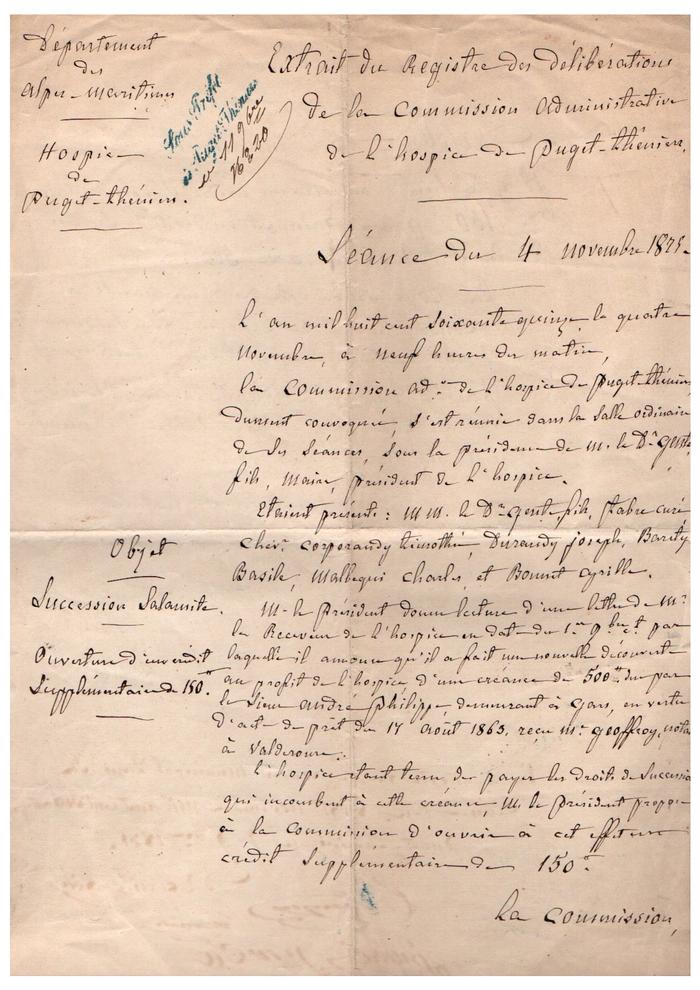 Département
des
Alpes-Maritimes
Hospice
de
Puget-Théniers.
Sous Préfet
de Puget-Théniers
11 9bre
Extrait du Registre des délibérations
de la Commission administrative
de l'hospice de Puget-théniers.
Séance du 4 novembre 1875.
L'an mil huit cent soixante quinze, le quatre
novembre, à neuf heures du matin,
la Commission ad.ve de l'hospice de Puget-théniers
dument convoquée, s'est réunie dans la salle ordinaire
de ses séances, sous la présidence de M. le Dr. Gente
fils, Maire, président de l'hospice.
Etaient présents : M M. le Dr Gente fils, Fabre curé
chevr. Corporandy timothée, Durandy joseph, Barety
Basile, Malbequi Charles, et Bonnet Cyrille.
Objet
Succession Salamite.
Ouverture d'un crédit
Supplémentaire de 150f.
M. le Président donne lecture d'une lettre de Mr.
le Receveur de l'hospice en date du 1er 9bre ct. par
laquelle il annonce qu'il a fait une nouvelle découverte
au profit de l'hospice d'une créance de 500f. due par
le Sieur André Philippe demeurant à Gars, en vertu
d'acte de prêt du 17 Août 1863, reçu Me. Geoffroy, notaire
à Valderoure.
L'hospice étant tenu de payer les droits de Succession
qui incombent à cette créance, M. le Président propose
à la Commission d'ouvrir à cet effet un
crédit Supplémentaire de 150f.
La Commission,